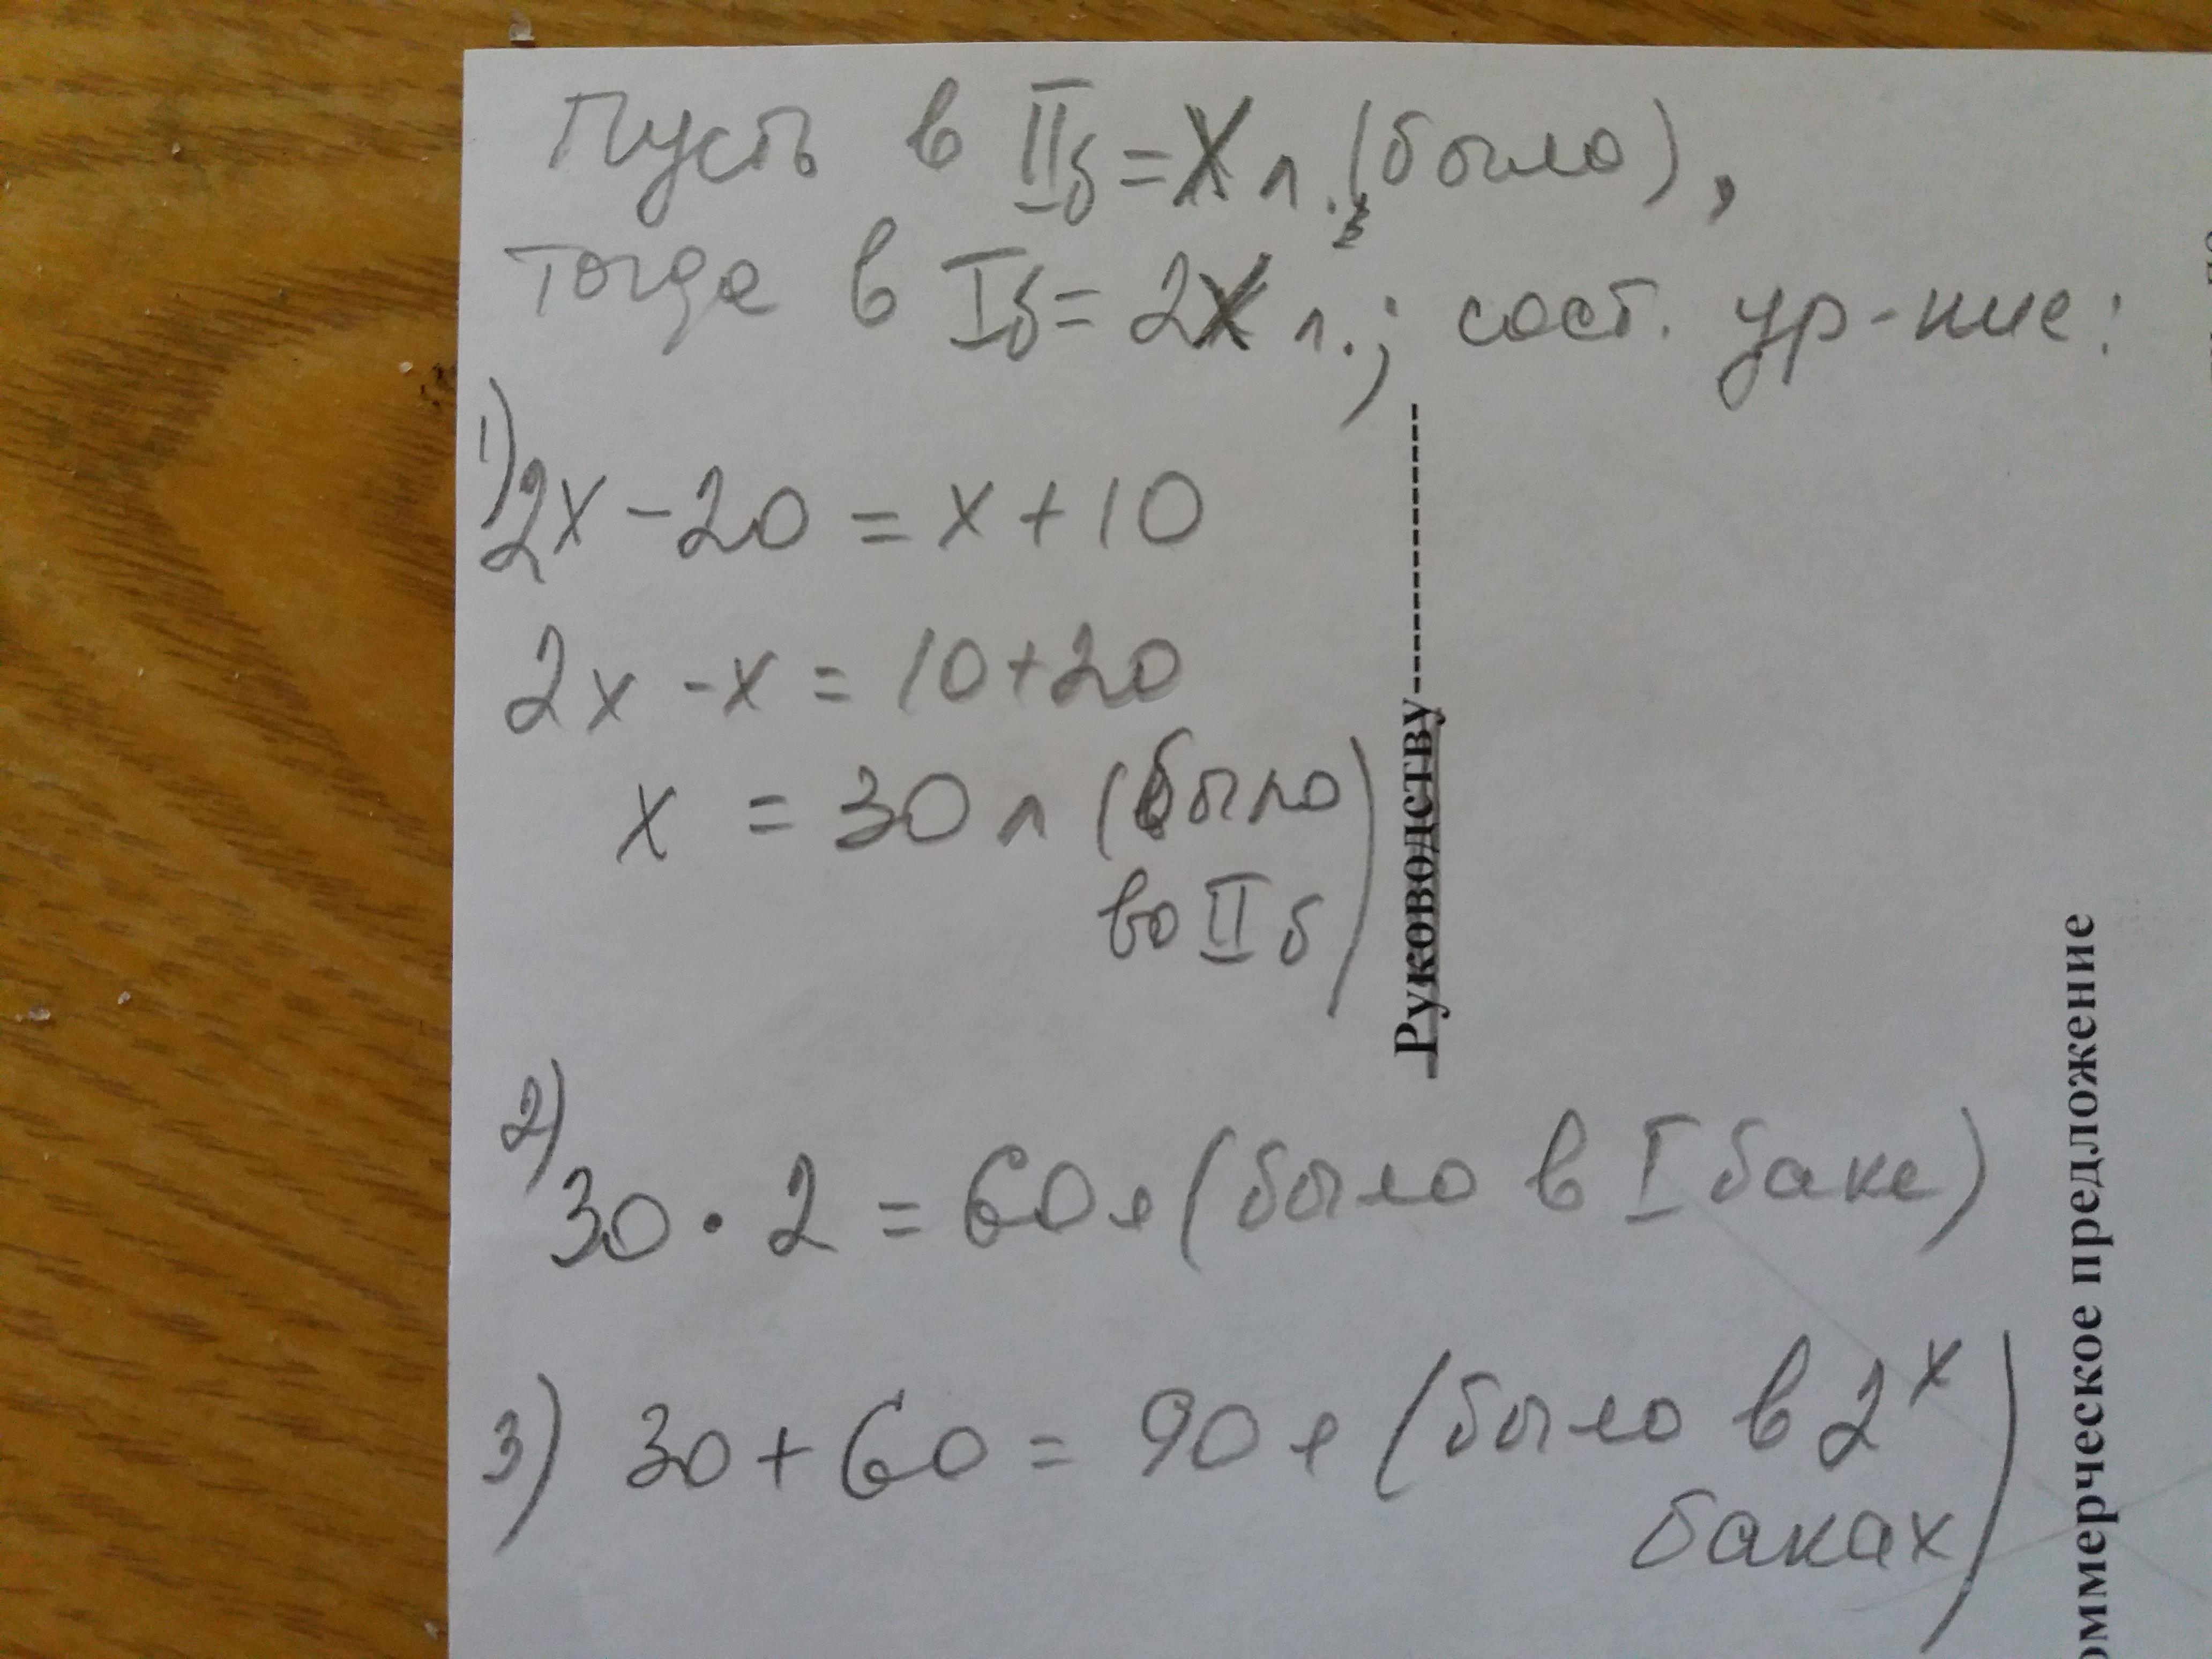 Пусть в II б = X л. (было),
тогда в I б = 2X л.; сост. ур-ние:
1) 2x - 20 = x + 10
2x - x = 10 + 20
x = 30 л (было
во II б)
2) 30 · 2 = 60 л (было в I баке)
3) 30 + 60 = 90 л (было в 2х
баках)
Руководству-----------------
оммерческое предложение